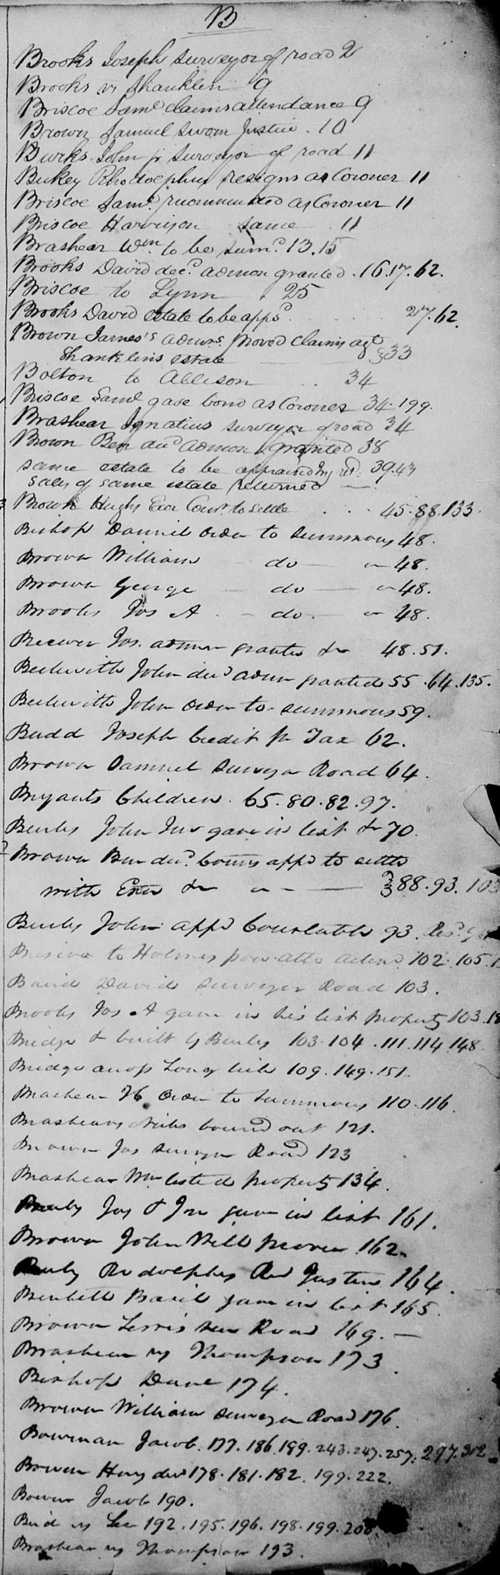 B
Brooks Joseph surveyor of road 2
Brooks vs Shanklin 9
Briscoe Saml claims attendance 9
Brown Samuel Sworn Justice . 10
Burks John jr Surveyor of road 11
Bukey resigns as Coroner 11
Briscoe Saml recommended as Coroner 11
Briscoe Harrison same 11
Brashear Wm to be sumd 13.15
Brooks David decd admon granted . 16.17.62.
Briscoe to Lynn . 25
Brooks David estate to be appd 27.62.
Brown James's admrs proved claims agt
Shanklins estate 33
Bolton to Allison 34
Briscoe Saml gave bond as Coroner 34.199.
Brashear Ignatius surveyor of road 34
Brown Ben admon granted 38
same estate to be appraised 39.43
Sales of same estate returned
Brown Exr Comr to settle 45.88.133.
Bishop Daniel order to summons 48.
Brown William do 48.
Brown George do 48.
Brooks Jos A do. 48.
Brewer Jos. admon granted &c 48.51.
Beckwith John decd admn granted 55.64.135.
Beckwith John order to summons 59.
Budd Joseph Credit for Tax 62.
Brown Samuel Surveyor Road 64.
Bryants Children . 65.80.82.97.
Burks John Junr gave in list &c 70.
Brown Ben decd Comrs appd to settle
with Exrs &c 88.93.103
Burks John appd Constable 93.
Briscoe to Holmes 102.105.
Baird David Surveyor Road 103.
Brooks Jos A gave in his list property 103.
Bridge built by Burks 103.104.111.114.148
Bridge across Long 109.149.151.
Brashear order to summons 110.116.
Brashears bound out 121.
Brown Jas survyr Road 123
Brashear Wm listed property 134.
Jas & Jno gave in list 161.
Brown John Will proven 162.
Rodolphus 164.
Basil gave in list 165.
Brown Road 169.
Brashear vs Thompson 173.
Bishop 174.
Brown William Surveyor Road 176.
Bowman Jacob. 177.186.189.243.247.257.297.302.
178.181.182.199.222.
Jacob 190.
Bird vs Lee 192.195.196.198.199.208
Brashear vs Thompson 193.